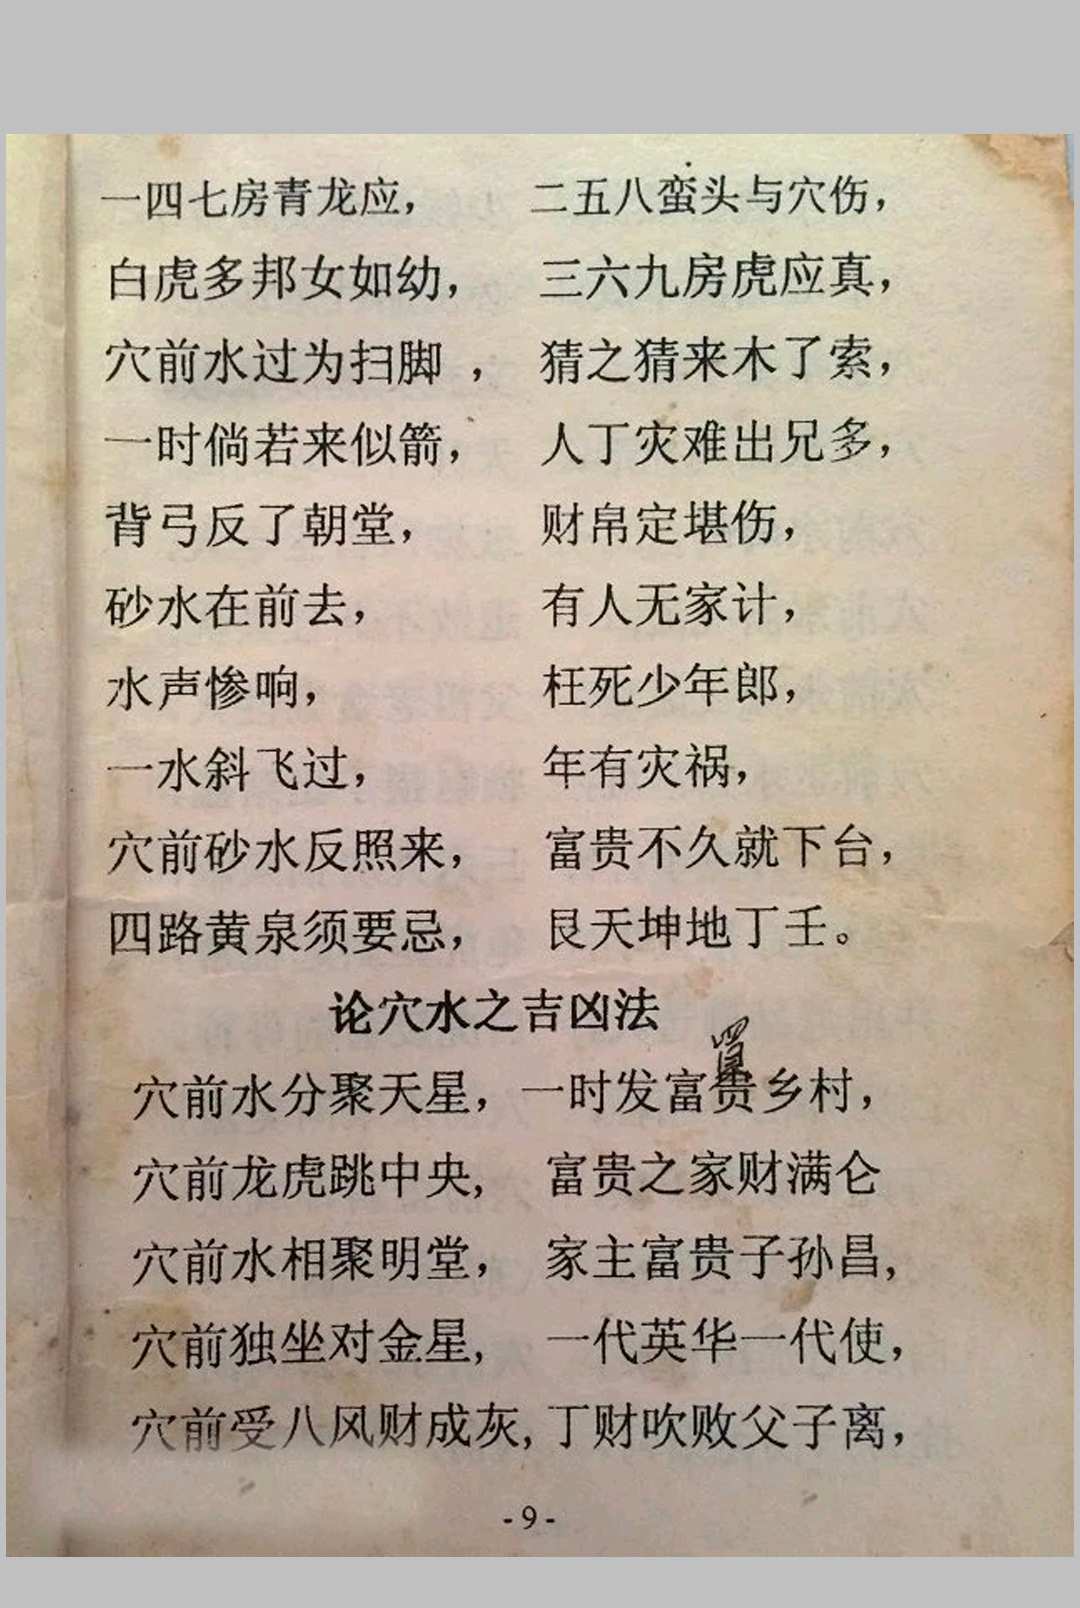 一四七房青龙应， 二五八蛮头与穴伤，
白虎多邦女如幼， 三六九房虎应真，
穴前水过为扫脚 ， 猜之猜来木了索，
一时倘若来似箭， 人丁灾难出兄多，
背弓反了朝堂， 财帛定堪伤，
砂水在前去， 有人无家计，
水声惨响， 枉死少年郎，
一水斜飞过， 年有灾祸，
穴前砂水反照来， 富贵不久就下台，
四路黄泉须要忌， 艮天坤地丁壬。
论穴水之吉凶法
穴前水分聚天星， 一时发富贵乡村，
穴前龙虎跳中央， 富贵之家财满仑
穴前水相聚明堂， 家主富贵子孙昌，
穴前独坐对金星， 一代英华一代使，
穴前受八风财成灰， 丁财吹败父子离，
-9-